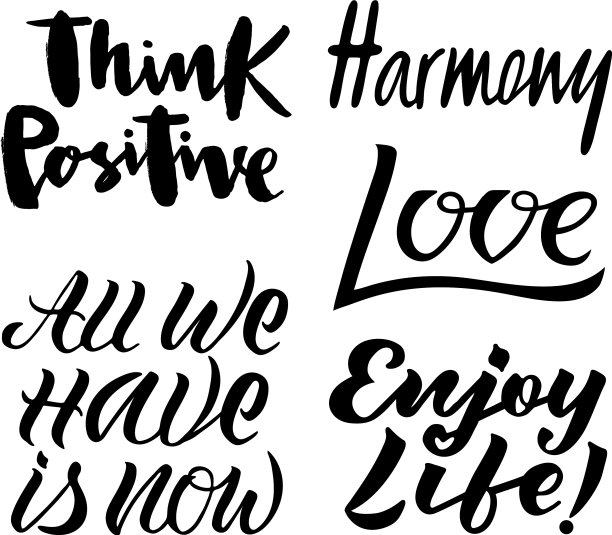 Think
Positive
Harmony
Love
All We
Have
is now
Enjoy
Life!